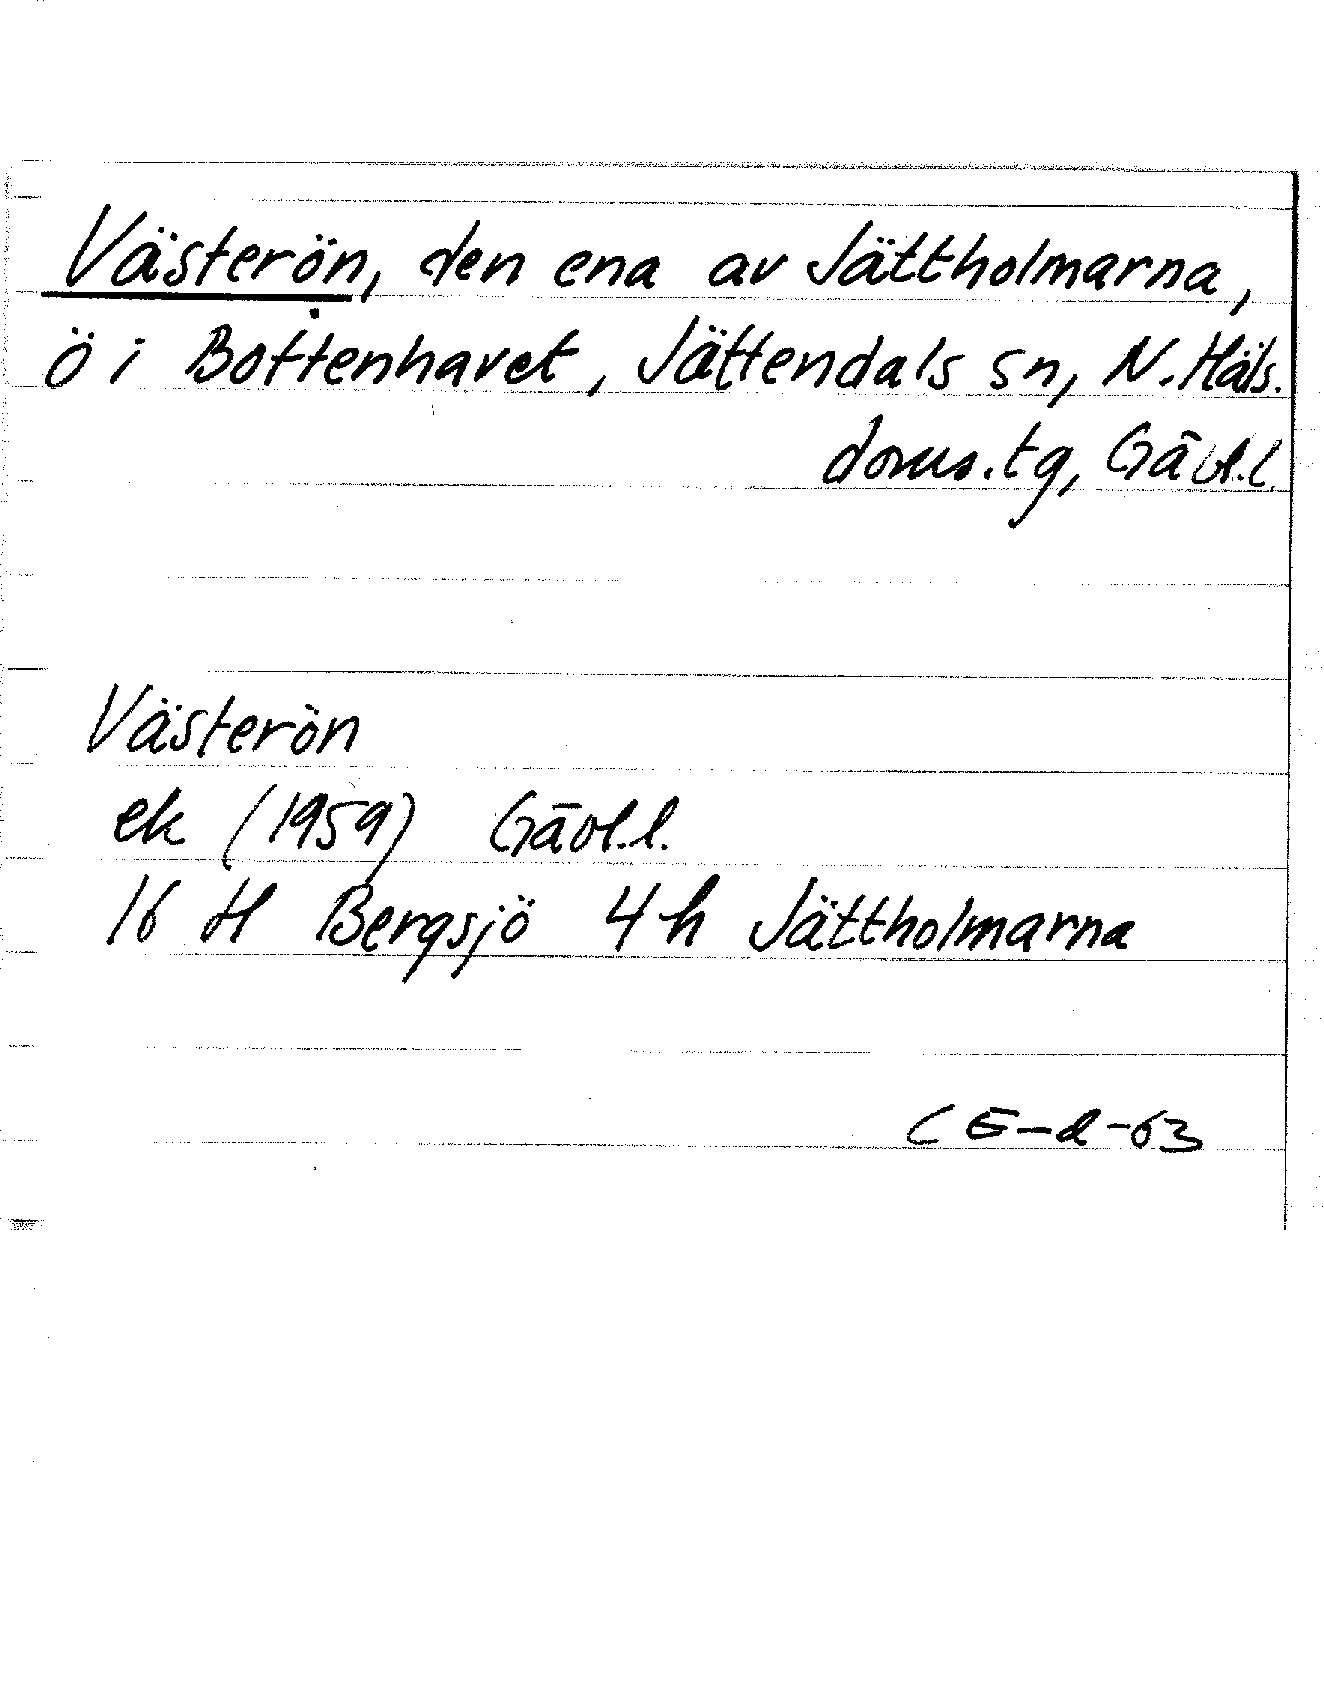 Västerön, den ena av Jättholmarna,
ö i Bottenhavet, Jättendals sn, N. Häls.
doms. tg, Gävl. l.
Västerön
ek (1959) Gävl. l.
16 H Bergsjö 4 h Jättholmarna